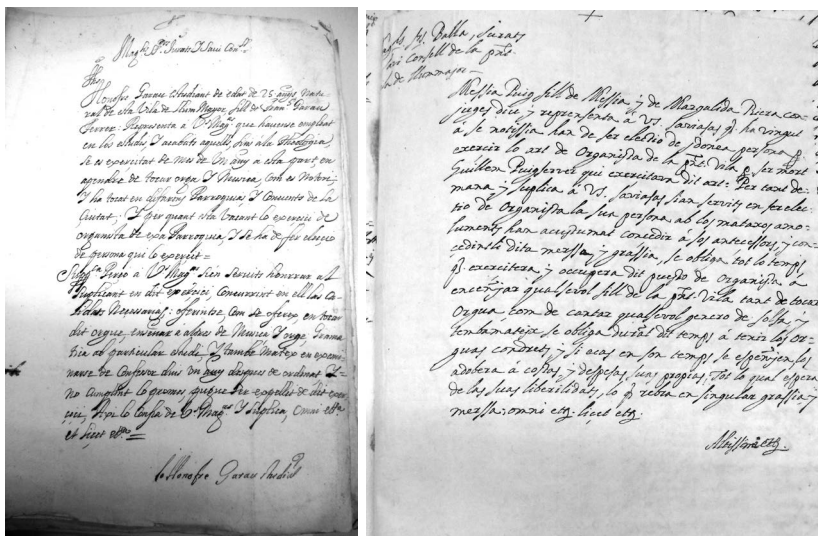 Magchs Srs Jurats Y Savi Conll
Honofre Garau estudiant de edat de 25 anys natu=
ral de esta Vila de Llum Mayor fill de Franch Garau
ferrer: Representa á Vs Mags que havense empleat
en los estudis, Y acabats aquells fins a la theologica,
se es exercitat de mes de un any a esta part en
apendre de tocar orga Y Musica com es notori,
Y ha tocat en diferens Parroquias Y Convents de la
Ciutat, Y per quant sta vacant lo exercici de
organista de esta Parroquia, Y se ha de fer eleccio
de persona qui lo exercit=
Pereo á Vs Mags sien servits honrrar al
Suplicant en dit exercici, Concurrint en ell las Ca=
lidats Necessarias; oferintse Com se ofereix en tocar
dit orgue, enseñar a altres de Musica Y orga, Grama=
tica ab particular studi, Y tambe mateix en exami=
narse de Confesor dins un any despues de ordenat Y
no cumplint lo promes, puguen ser expellit de dit exer=
cici, Axi lo Confia de Vs Mags Y suplica, omni etta
et licet etta=
Honofre Garau
Balla, Jurats
Consell de la pnt
Vila de Llummajor
Messia Puig fill de Messia, y de Margalida Riera con=
juges diu, y representa á VS. Saviesas q. ha vingut
á se noticia han de fer electio de idonea persona p.
exercir lo art de Organista de la pnt. Vila p. ser mort
Guillem Puigserver qui exercitava dit art: Per tant de=
mana, y suplica á VS. Saviesas sian servits en fer elec=
tio de Organista la sua persona ab los matexos, emo=
luments han acustumat concedir á los antecessors, y con=
cedintli dita merssa, y grassia, se obliga tot lo temps
q. exercitera, y occupera dit puesto de Organista á
enceñjar qualsevol fill de la pnt. Villa tant de tocar
Orgua, com de cantar qualsevol genero de solfa, y
tembe mateix se obliga durat dit temps á tenir los or=
guas condrets, y si acas en son temps se espenjen los
adobera á costas, y despesas suas propias; Tot lo qual espera
de las suas liberalidats, lo q. rebra en singular grassia, y
merssa; omni ettz. licet ettz.
Altissimus ettz.